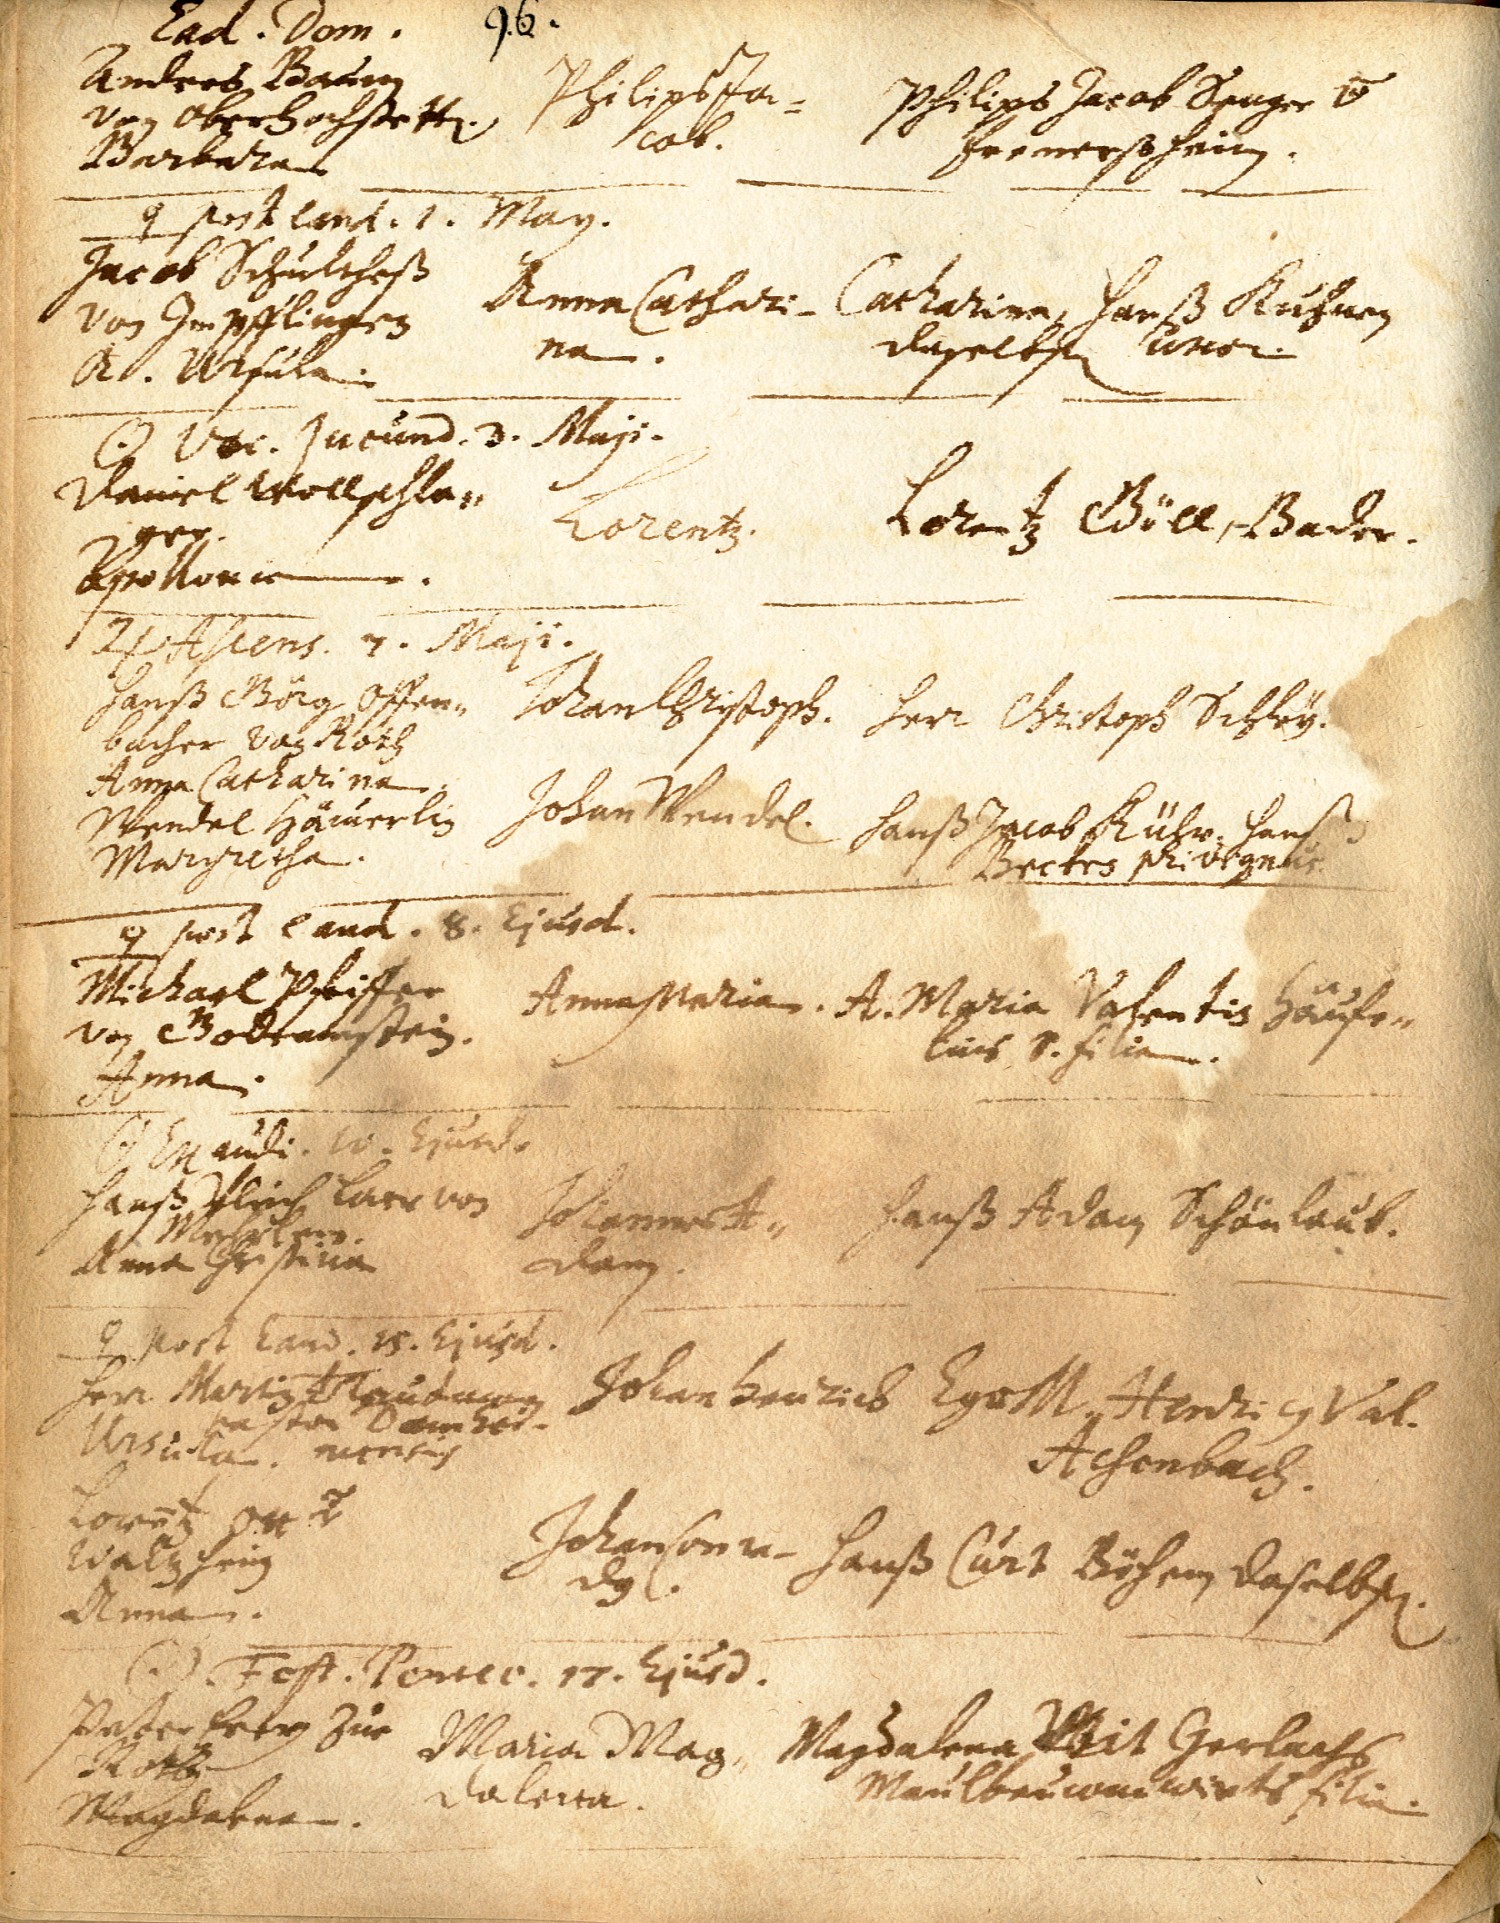 Ead. Dom. 96.
Andres Baum
von Oberhochstett.
Barbara
Philips Ja=
cob.
Philips Jacob Senger v
Fremerßheim.
♀ post Cand. 1. May.
Jacob Schultheß
von Impflingen
A. Ursula.
Anna Cathari-
na.
Catharina, Hanß Kuhnen
daselbst uxor.
☉ Voc. Jucund. 3. Maji.
Daniel Wollschla=
ger.
Apollonia.
Lorentz.
Lorentz Göll, Bader.
♃ Ascens. 7. Maji.
Hanß Görg Offen=
bacher von Roth
Anna Catharina.
Johan Christoph.
Herr Christoph Schley.
Wendel Häuerlin
Margretha.
Johan Wendel.
Hanß Jacob Kühn. Hanß
Beckes privignus.
♀ post Cand. 8. Ejusd.
Michael Pfeiffer
von Godramstein.
Anna.
Anna Maria.
A. Maria Valentis Häuse=
lins S. filia.
☉ Exaudi. 10. Ejusd.
Hanß Ulrich Laer von
Anna Christina
Johannes A=
dam.
Hanß Adam Schönlaub.
♀ post Cand. 15. Ejusd.
Herr Martin Trautman
pastor Damhei-
Ursula. mensis
Johan Henrich
Ego M. Henricg Val.
Achenbach.
Lorentz Ott v
Waltzheim
Anna.
Johan Conra-
dg.
Hanß Curt Böhem daselbst.
☉ Fest. Pentec. 17. Ejusd.
Peter Frey zur
Roth
Magdalena.
Maria Mag=
dalena.
Magdalena Veit Gerlachs
Maulbaumwirts filia.